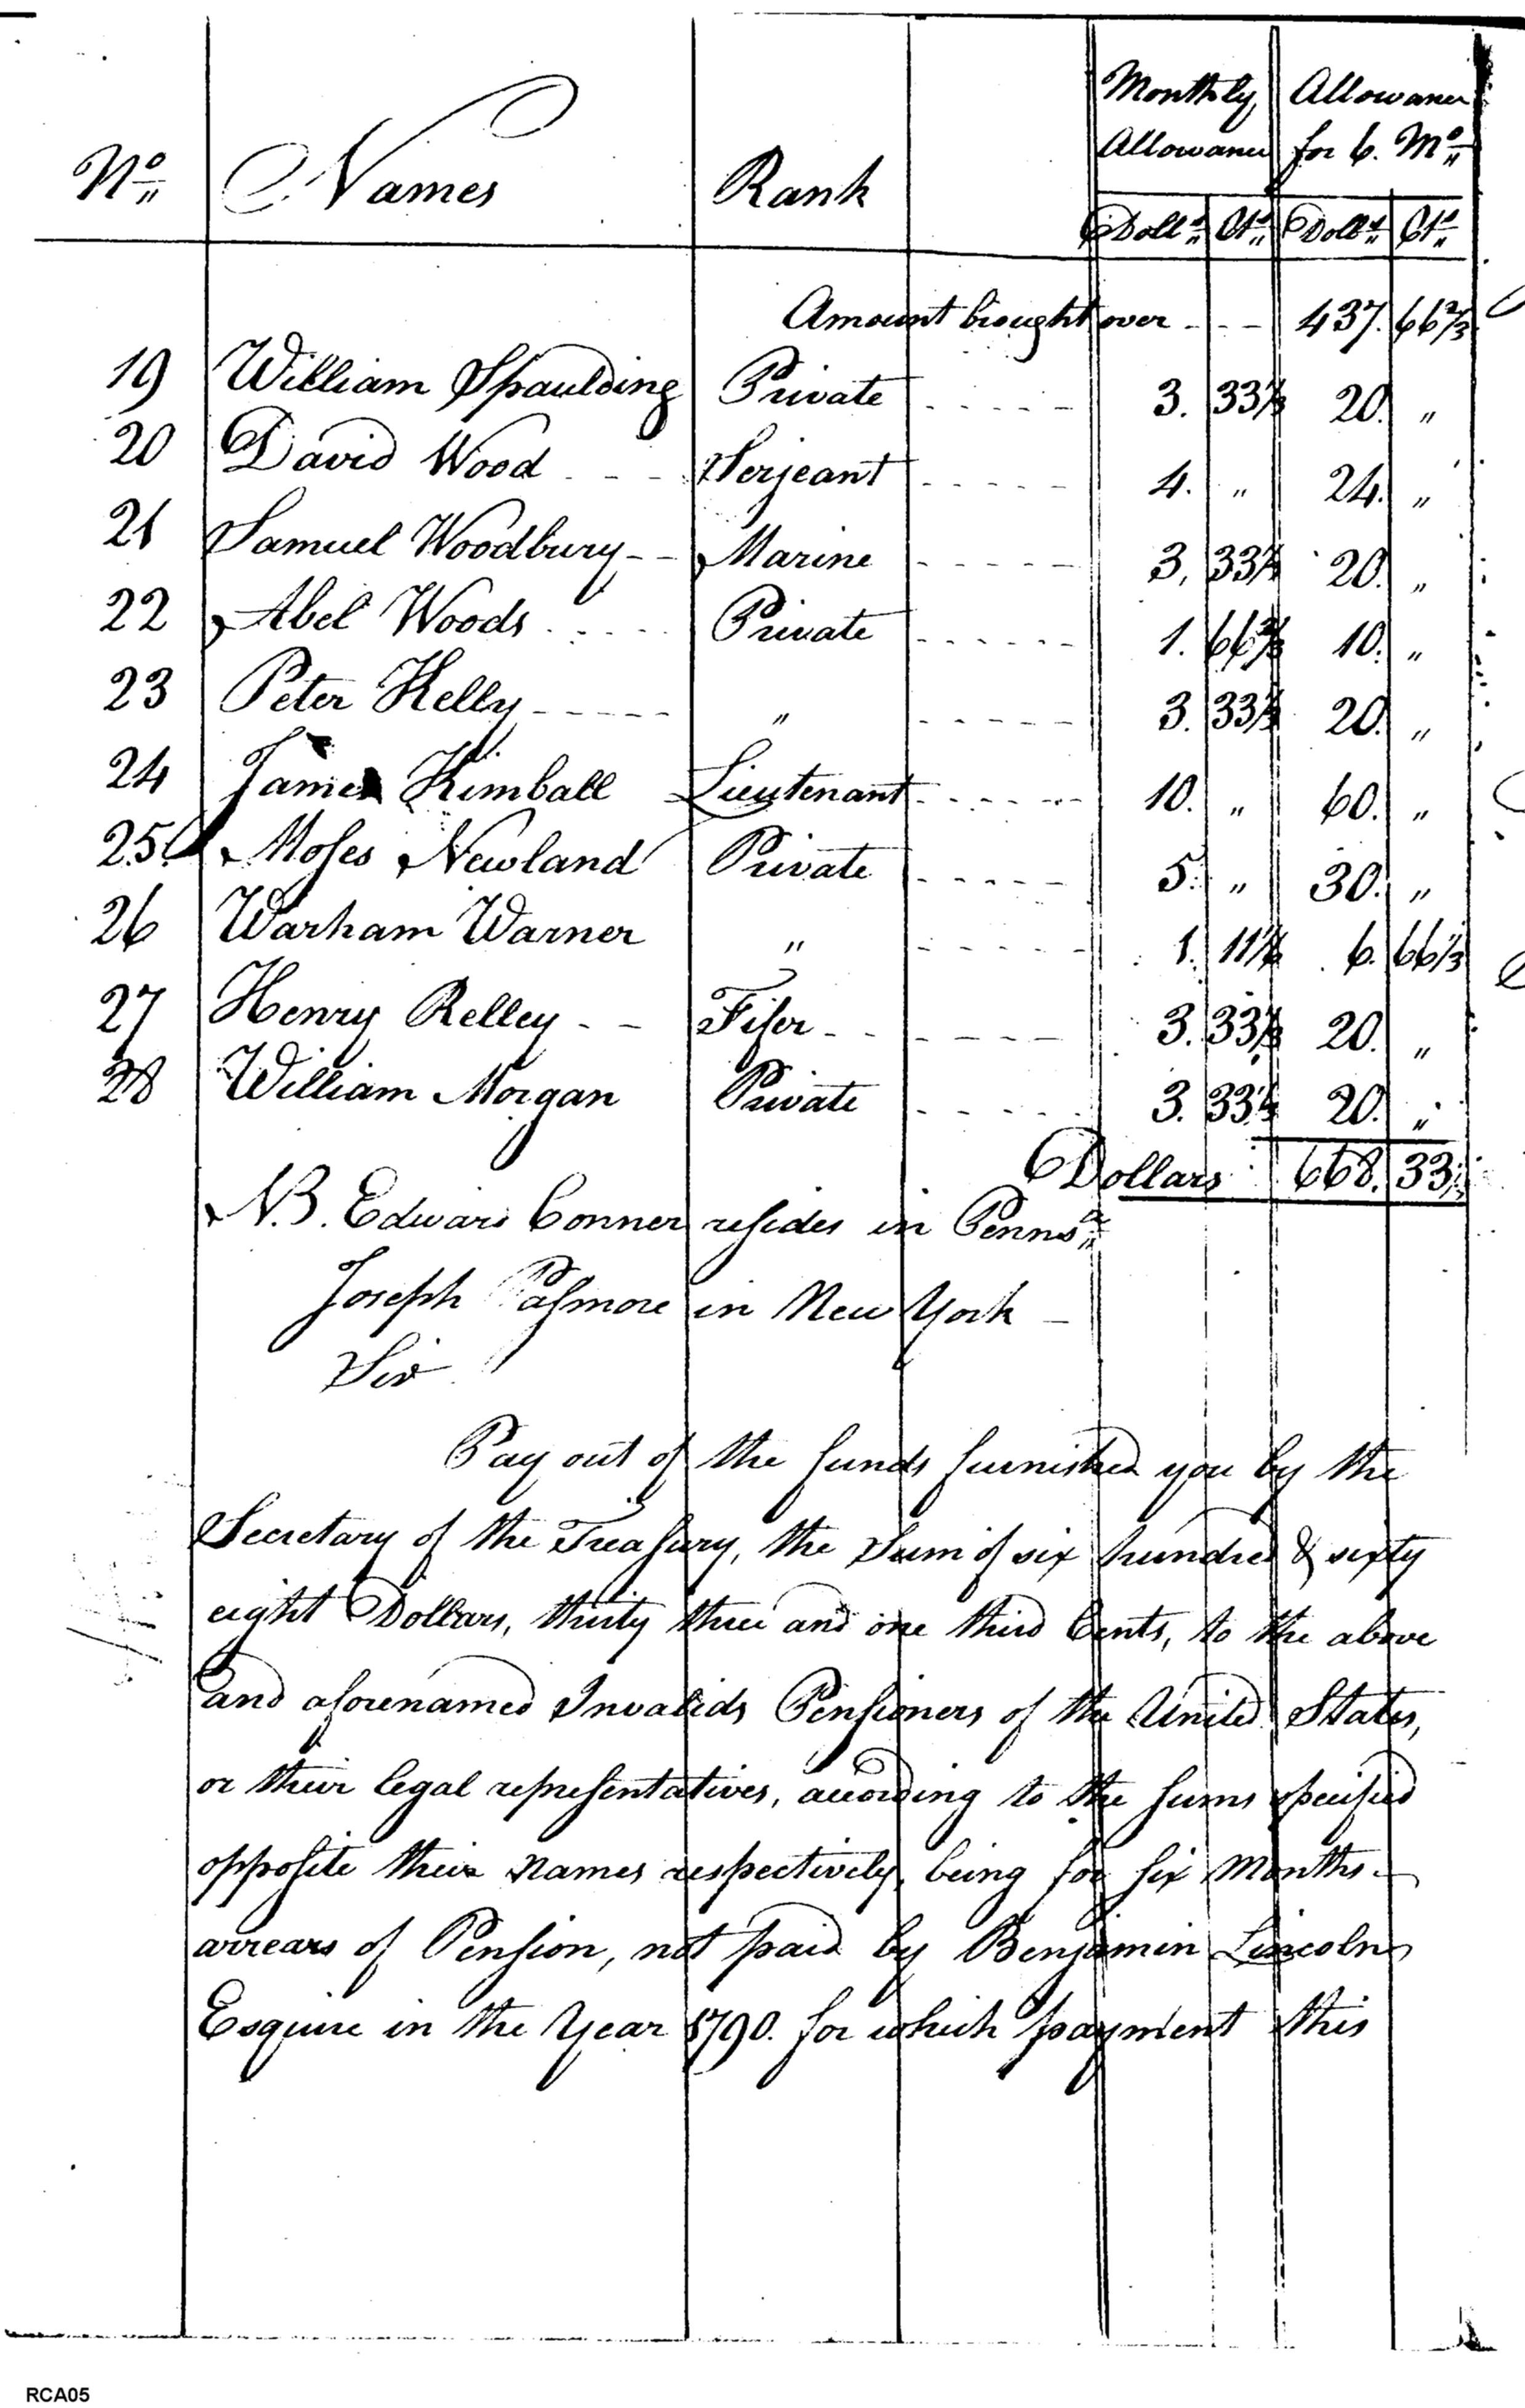 No. Names Rank Monthly Allowance Allowance for 6. Mo.
Dolls. Cts. Dolls. Cts.
Amount brought over - - - 437. 66 2/3
19 William Spaulding Private 3. 33 1/3 20. "
20 David Wood Serjeant 4. " 24. "
21 Samuel Woodbury Marine 3. 33 1/3 20. "
22 Abel Woods Private 1. 66 2/3 10. "
23 Peter Kelly " 3. 33 1/3 20. "
24 James Kimball Lieutenant 10. " 60. "
25 Moses Newland Private 5. " 30. "
26 Warham Warner " 1. 11 6. 66 1/3
27 Henry Relley Fifer 3. 33 1/3 20. "
28 William Morgan Private 3. 33 1/3 20. "
Dollars 668. 33 1/3
N.B. Edward Conner resides in Penns.a
Joseph Palmore in New York
Sir
Pay out of the funds furnished you by the
Secretary of the Treasury, the Sum of six hundred & sixty
eight Dollars, thirty three and one third Cents, to the above
and aforenamed Invalids Pensioners of the United States,
or their legal representatives, according to the sums specified
opposite their Names respectively, being for six Months
arrears of Pension, not paid by Benjamin Lincoln
Esquire in the Year 1790. for which payment this
RCA05